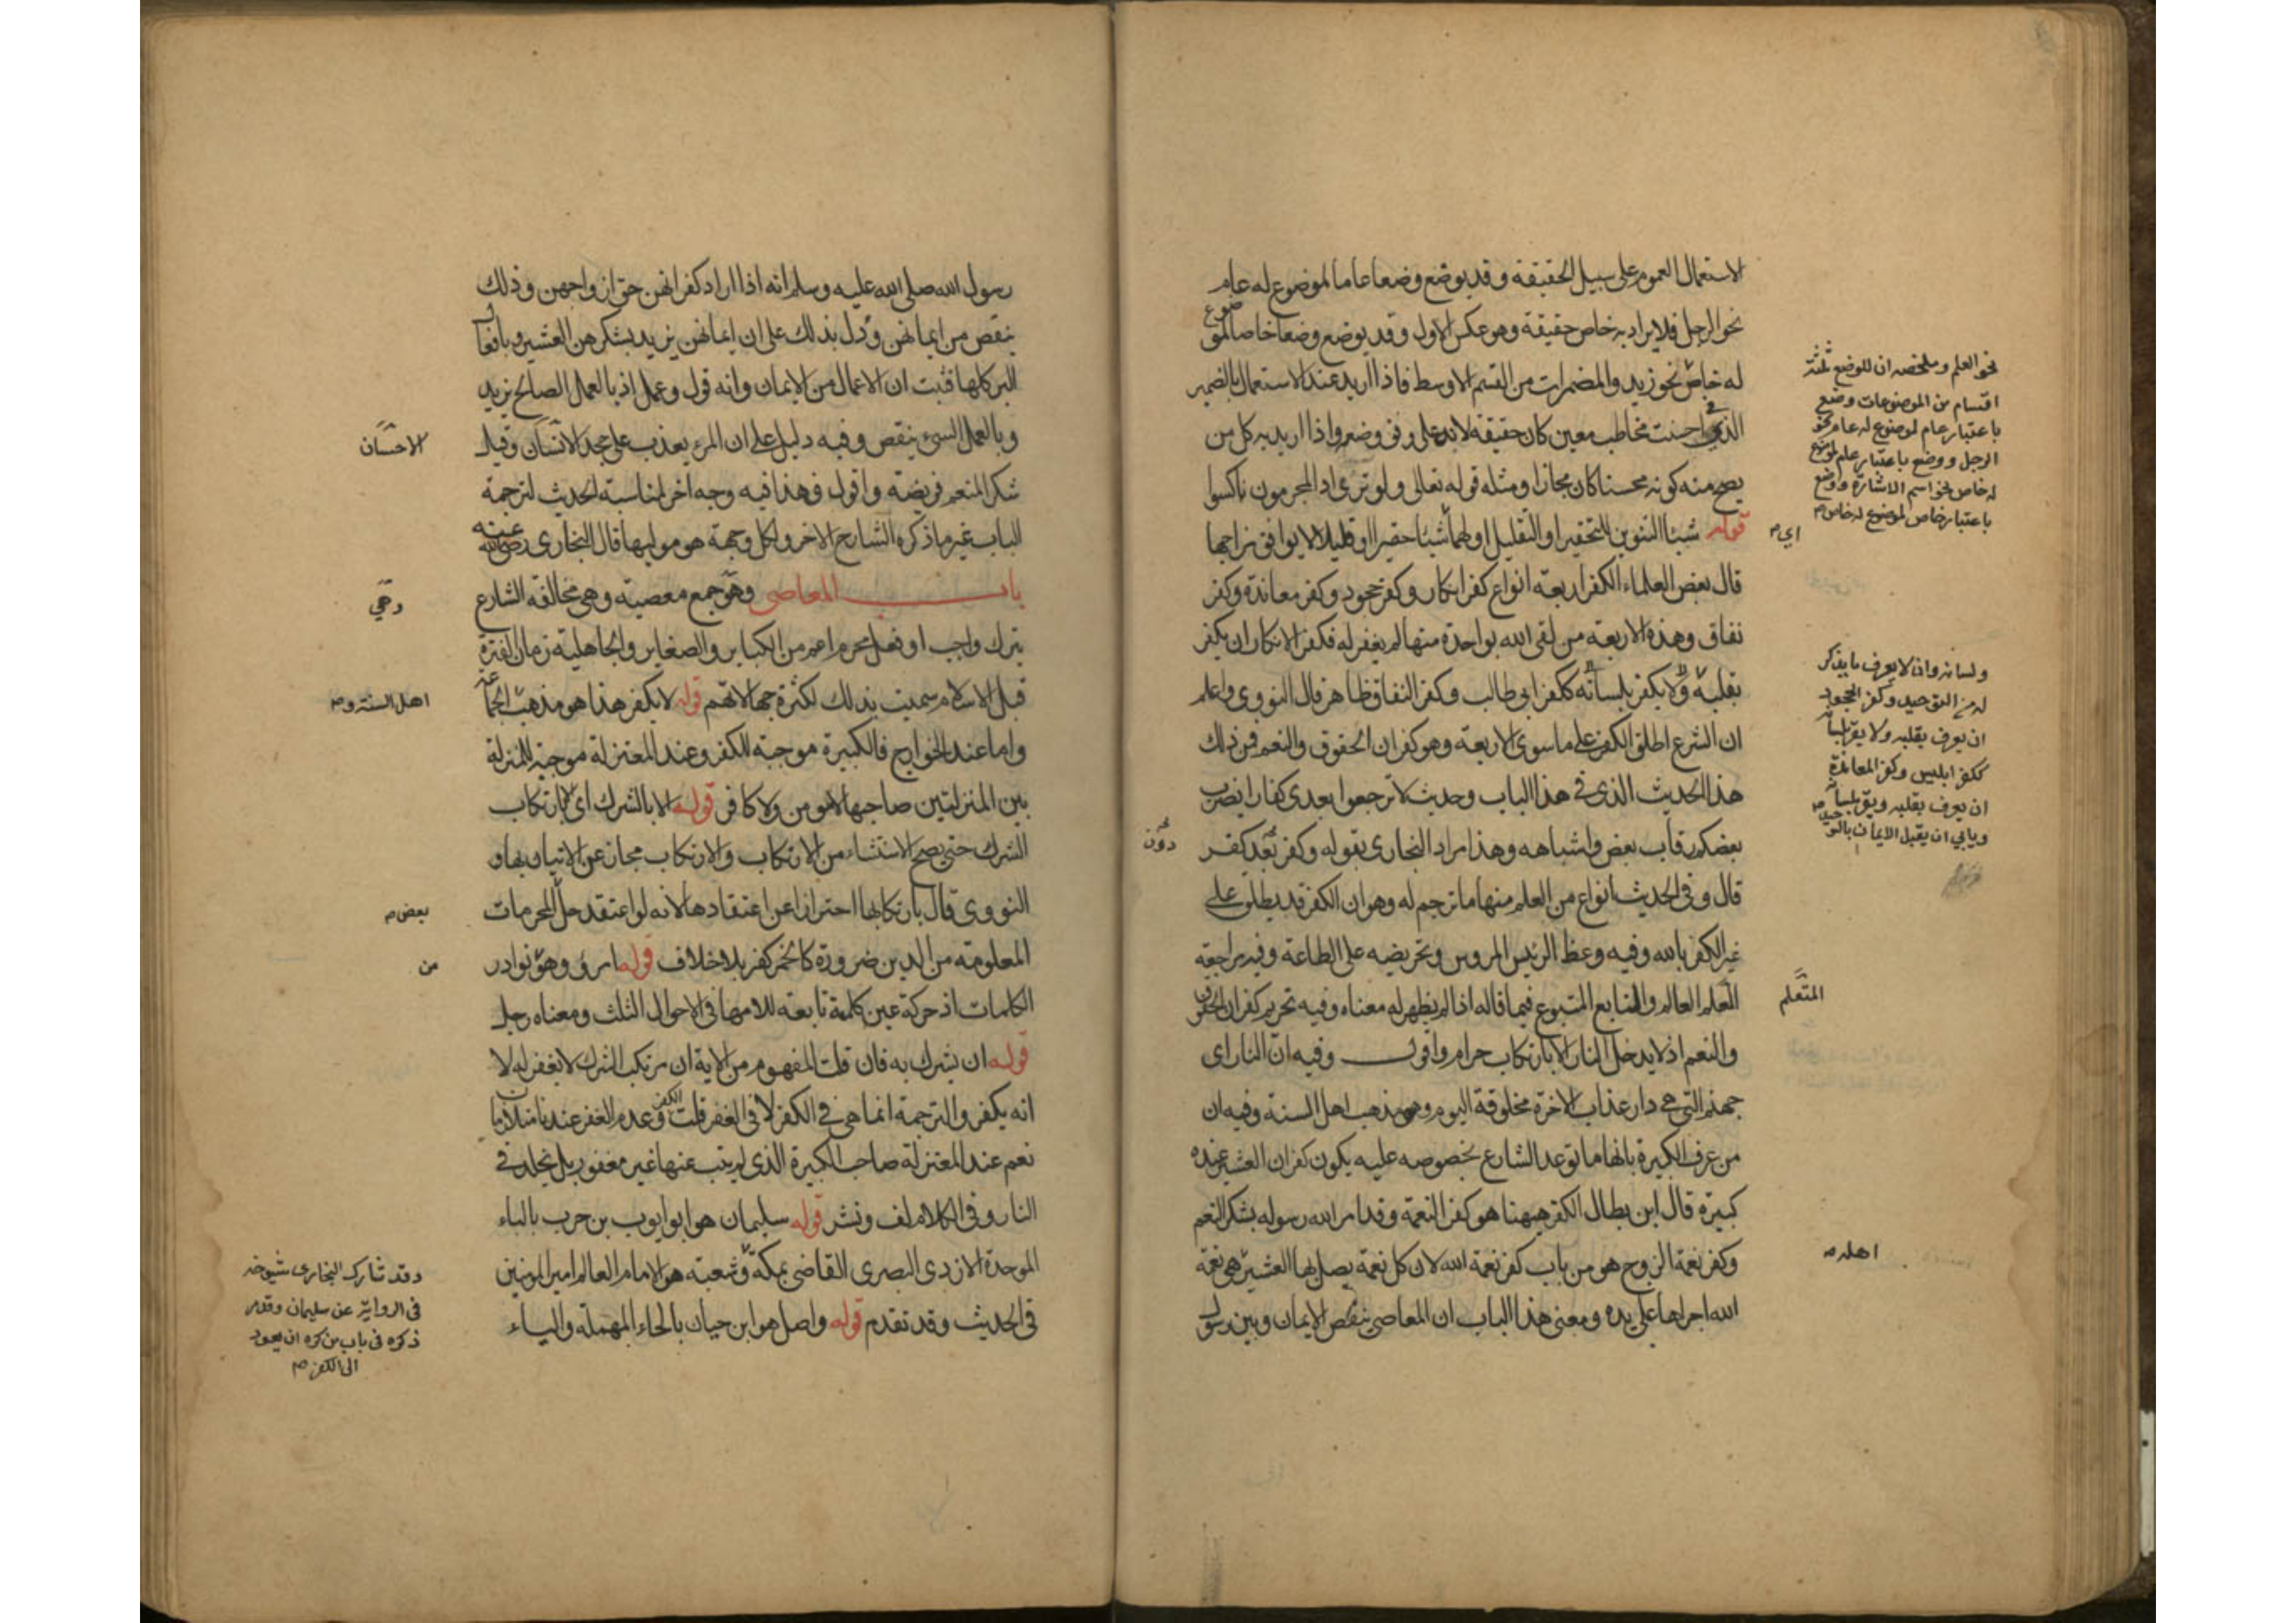 الاستعمال العموم على سبيل الحقيقة وقد يوضع وضعا عاما لموضوع له عام
نحو الرجل فلا يراد به خاص حقيقة وهو عكس الاول وقد يوضع وضعا خاصا لموضوع
له خاص نحو زيد والمضمرات من القسم الاوسط فاذا اريد عند الاستعمال بالضمير
الذي في احسنت مخاطب معين كان حقيقة لانه على وفق وضعه واذا اريد به كل من
يصح منه كونه محسنا كان مجازا ومثله قوله تعالى ولو ترى اذ المجرمون ناكسوا
قوله شيئا التنوين للتحقير او التقليل اولهما شيئا حقيرا او قليلا لا يوافق مزاجها
قال بعض العلماء الكفر اربعة انواع كفر انكار وكفر جحود وكفر معاندة وكفر
نفاق وهذه الاربعة من لقى الله بواحدة منها لم يغفر له فكفر الانكار ان يكفر
بقلبه ولا يكفر بلسانه ككفر ابي طالب وكفر النفاق ظاهر قال النووي واعلم
ان الشرع اطلق الكفر على ما سوى الاربعة وهو كفران الحقوق والنعم فمن ذلك
هذا الحديث الذي في هذا الباب وحديث لا ترجعوا بعدي كفارا يضرب
بعضكم رقاب بعض واشباهه وهذا مراد البخاري بقوله وكفر بعد كفر
قال وفي الحديث انواع من العلم منها ما ترجم له وهو ان الكفر قد يطلق على
غير الكفر بالله وفيه وعظ الرئيس المروس وتحريضه على الطاعة وفيه مراجعة
العلم العالم والتابع المتبوع فيما قاله اذا لم يظهر له معناه وفيه تحريم كفران الحقوق
والنعم اذ لا يدخل النار الا بارتكاب حرام واقول وفيه ان النار اي
جهنم التي هي دار عذاب الاخرة مخلوقة اليوم وهو مذهب اهل السنة وفيه ان
من عرف الكبيرة بانها ما توعد الشارع بخصوصه عليه يكون كفران العشير عنده
كبيرة قال ابن بطال الكفر ههنا هو كفر النعمة وقد امر الله رسوله بشكر النعم
وكفر نعمة الزوج هو من باب كفر نعمة الله لان كل نعمة يصل بها العشير هي نعمة
الله اجراها على يده ومعنى هذا الباب ان المعاصي ينقص الايمان وبين رسول
نحو العلم وملخصه ان للوضع ثلثة
اقسام من الموضوعات وضع
باعتبار عام لموضوع له عام نحو
الرجل ووضع باعتبار عام لموضوع
له خاص نحو اسم الاشارة ووضع
باعتبار خاص لموضوع له خاص
اي
ولسانه وان لا يعرف ما يذكر
له من التوحيد وكفر الجحود
ان يعرف بقلبه ولا يقر بلسانه
ككفر ابليس وكفر المعاندة
ان يعرف بقلبه ويقر بلسانه
ويابي ان يقبل الايمان بالتوحيد
دون
المتعلم
اهله
رسول الله صلى الله عليه وسلم انه اذا اراد كفرانهن حق ازواجهن وذلك
ينقص من ايمانهن ودل بذلك على ان ايمانهن يزيد بشكرهن العشير وبافعال
البر كلها فثبت ان الاعمال من الايمان وانه قول وعمل اذ بالعمل الصالح يزيد
وبالعمل السيء ينقص وفيه دليل على ان المرء يعذب على جحد الانسان وقيل
شكر المنعم فريضة واقول فهذا فيه وجه اخر لمناسبة الحديث لترجمة
الباب غير ما ذكره الشارح الاخر ولكل وجهة هو موليها قال البخاري رضي الله عنه
باب المعاصي وهو جمع معصية وهي مخالفة الشارع
بترك واجب او فعل محرم اعم من الكبائر والصغاير والجاهلية زمان الفترة
قبل الاسلام سميت بذلك لكثرة جهالاتهم قوله لا يكفر هذا هو مذهب الجماعة
واما عند الخوارج فالكبيرة موجبة للكفر وعند المعتزلة موجبة للمنزلة
بين المنزلتين صاحبها لا مومن ولا كافر قوله الا بالشرك اي الا بارتكاب
الشرك حتى يصح الاستثناء من الارتكاب والارتكاب مجاز عن الاتيان بها و
النووي قال بارتكابها احترازا عن اعتقادها لانه لو اعتقد حل المحرمات
المعلومة من الدين ضرورة كالخمر كفر بلا خلاف قوله امرؤ وهو نوادر
الكلمات اذ حركة عين كلمة تابعة للامها في الاحوال الثلث ومعناه رجل
قوله ان يشرك به فان قلت المفهوم من الاية ان مرتكب الشرك لا يغفر له لا
انه يكفر والترجمة انما هي في الكفر لا في الغفر قلت الكفر وعدم الغفر عندنا متلازمان
نعم عند المعتزلة صاحب الكبيرة الذي لم يتب عنها غير مغفور بل يخلد في
النار وفي الكلام لف ونشر قوله سليمان هو ابو ايوب بن حرب بالباء
الموحدة الازدي البصري القاضي بمكة وشعبة هو الامام العالم امير المومنين
في الحديث وقد تقدم قوله واصل هو ابن حيان بالحاء المهملة والياء
الاحسان
وهي
اهل السنة و
بعض
من
وقد شارك البخاري شيوخه
في الرواية عن سليمان وقدم
ذكره في باب من كره ان يعود
الى الكفر